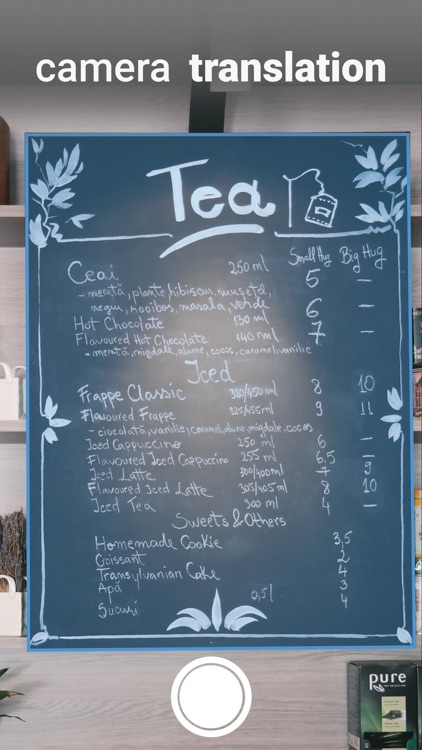 camera translation
Tea
Small Hug Big Hug
Ceai 250 ml 5 —
- mentă, plante, hibiscus, mușețel,
negru, rooibos, masala, verde 6 —
Hot Chocolate 130 ml
Flavoured Hot Chocolate 140 ml 7 —
- mentă, migdale, alune, cocos, caramel, vanilie
Iced
Frappe Classic 320/450ml 8 10
Flavoured Frappe 325/455ml 9 11
- ciocolată, vanilie, caramel, alune, migdale, cocos
Iced Cappuccino 250 ml 6 —
Flavoured Iced Cappuccino 255 ml 6.5 —
Iced Latte 300/400ml 7 9
Flavoured Iced Latte 305/405ml 8 10
Iced Tea 300 ml 4 —
Sweets & Others
Homemade Cookie 3,5
Croissant 2
Transylvanian Cake 4
Apă 0,5l 3
Sucuri 4
pure